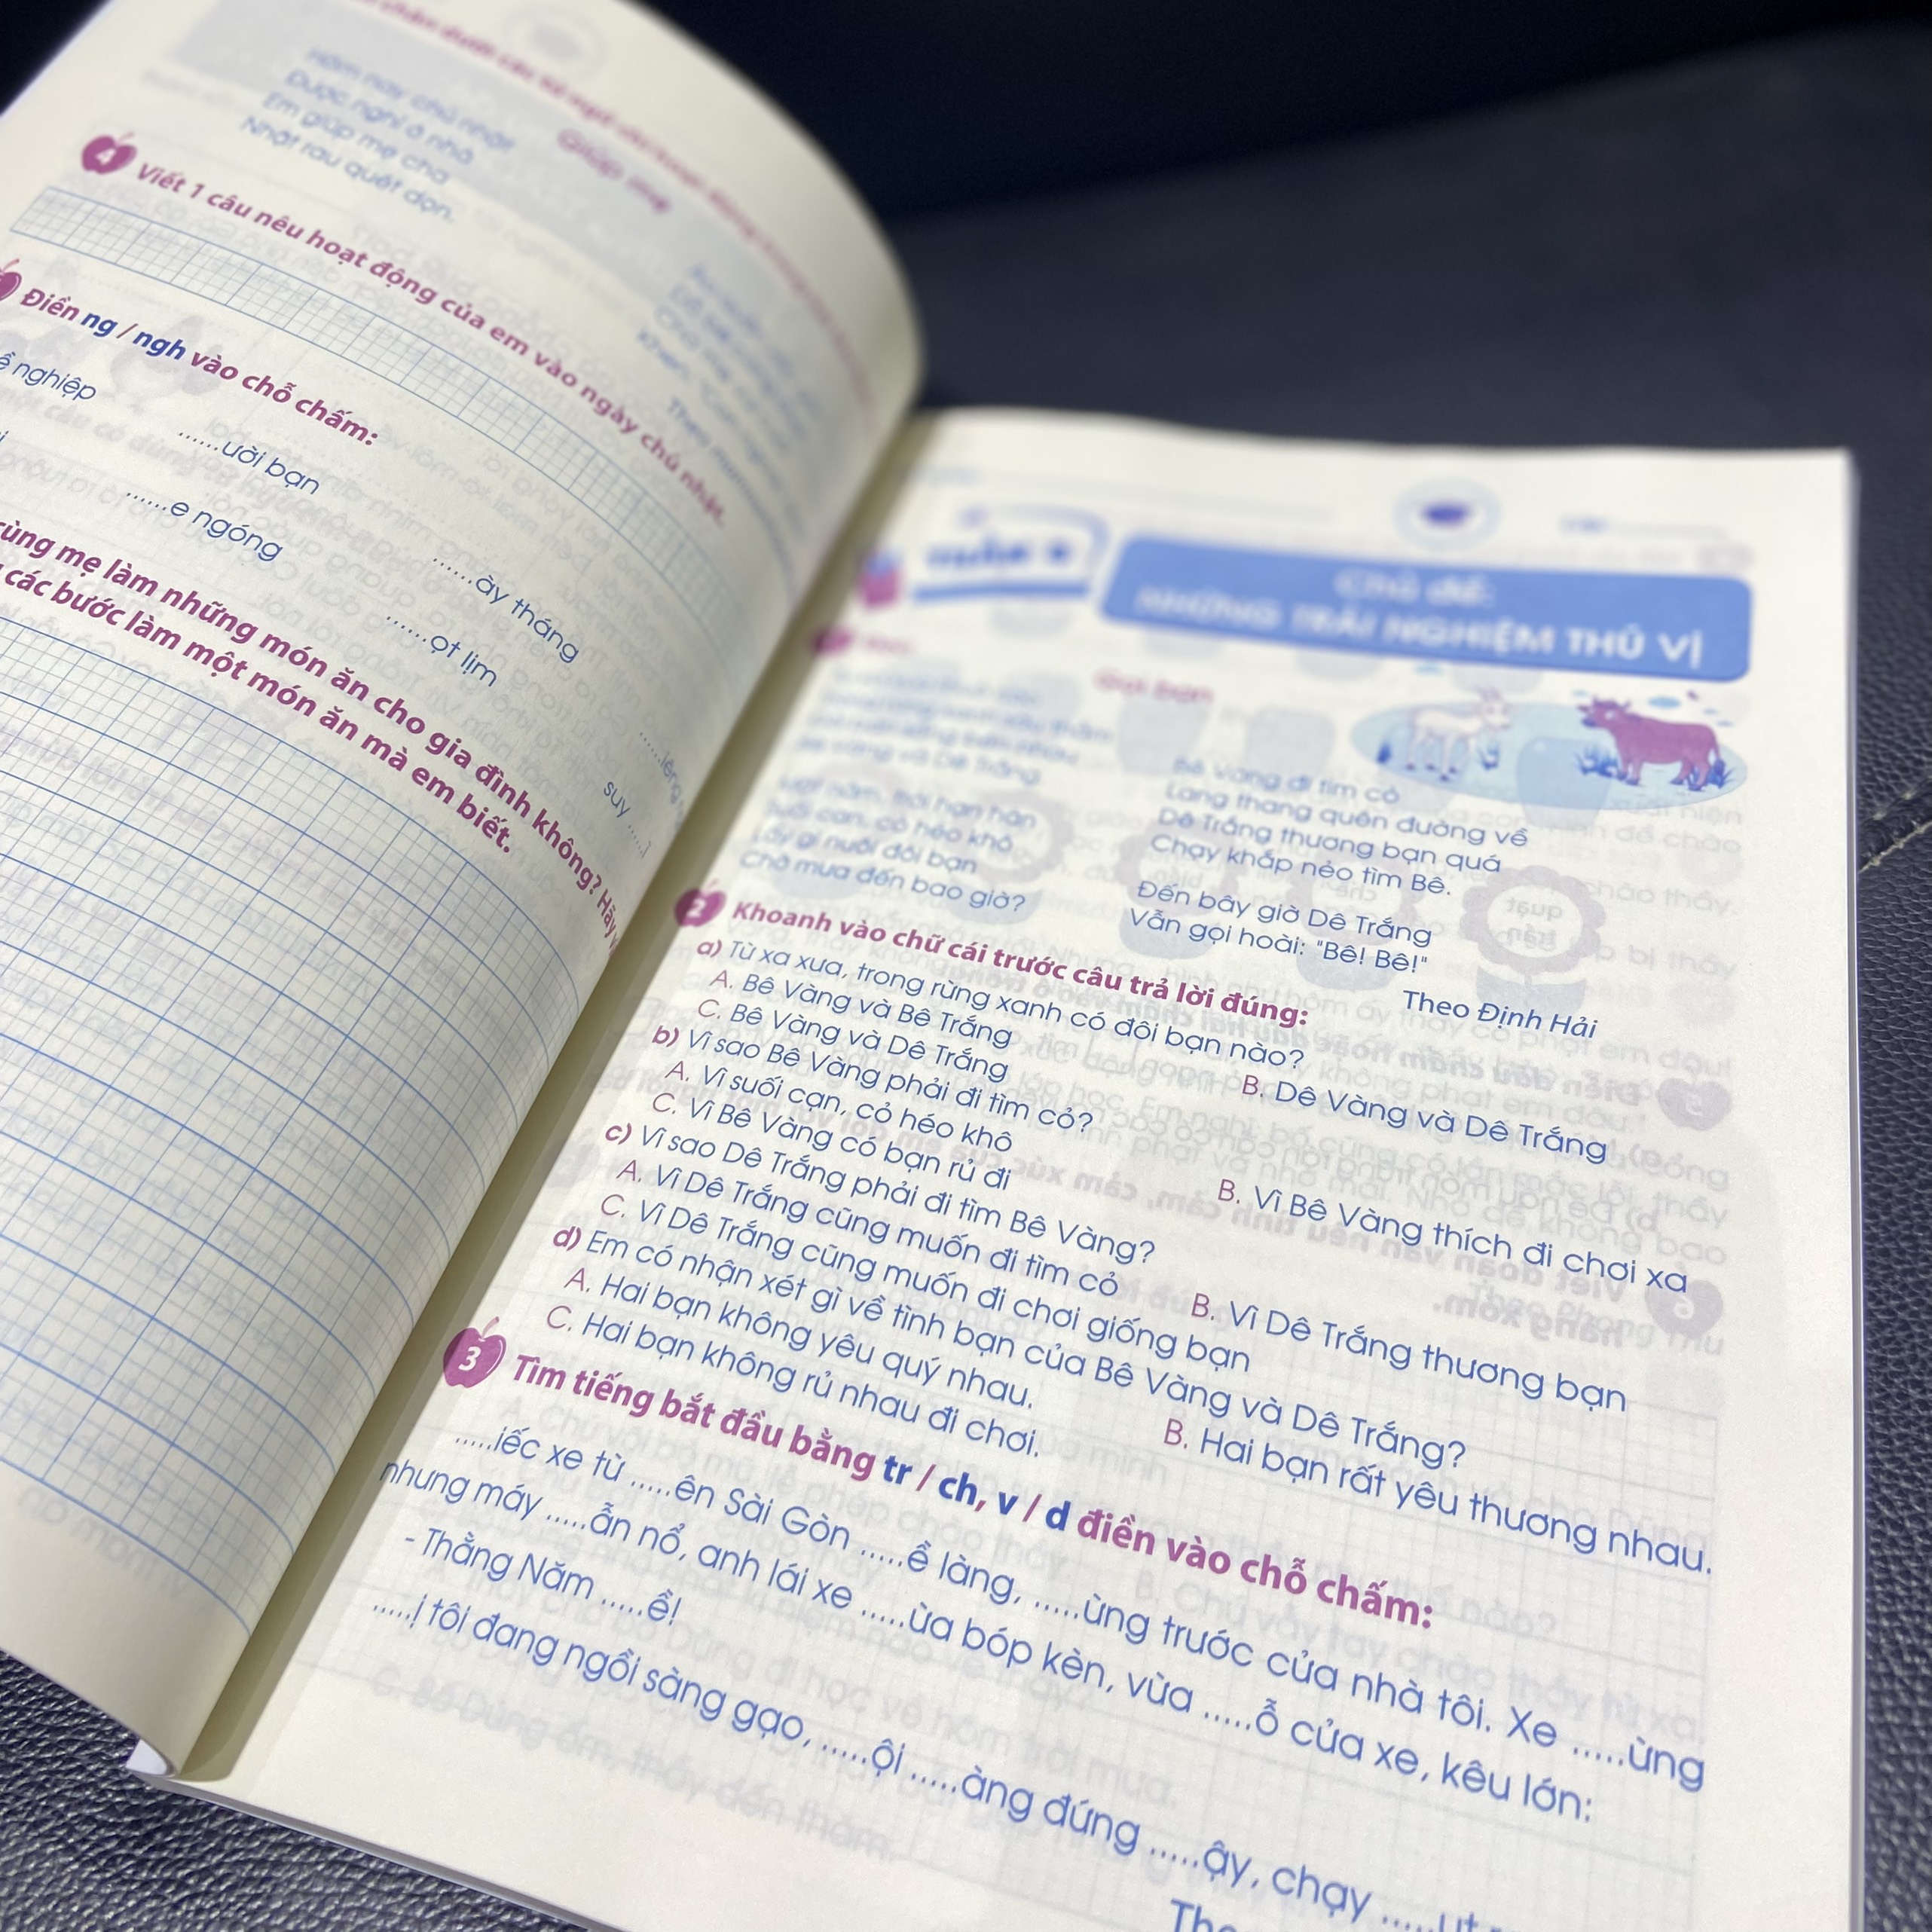 Giúp mẹ
Hôm nay chủ nhật
Được nghỉ ở nhà
Em giúp mẹ cha
Nhặt rau quét dọn.
4 Viết 1 câu nêu hoạt động của em vào ngày chủ nhật.
Điền ng / ngh vào chỗ chấm:
nghiệp
......ười bạn
......ày tháng
......e ngóng
......ọt lịm
suy ......ĩ
cùng mẹ làm những món ăn cho gia đình không? Hãy
các bước làm một món ăn mà em biết.
TUẦN
Chủ đề:
NHỮNG TRẢI NGHIỆM THÚ VỊ
Gọi bạn
Bê Vàng và Dê Trắng
Một năm, trời hạn hán
Suối cạn, cỏ héo khô
Lấy gì nuôi đôi bạn
Chờ mưa đến bao giờ?
Bê Vàng đi tìm cỏ
Lang thang quên đường về
Dê Trắng thương bạn quá
Chạy khắp nẻo tìm Bê.
Đến bây giờ Dê Trắng
Vẫn gọi hoài: "Bê! Bê!"
Theo Định Hải
2 Khoanh vào chữ cái trước câu trả lời đúng:
a) Từ xa xưa, trong rừng xanh có đôi bạn nào?
A. Bê Vàng và Bê Trắng
B. Dê Vàng và Dê Trắng
C. Bê Vàng và Dê Trắng
b) Vì sao Bê Vàng phải đi tìm cỏ?
A. Vì suối cạn, cỏ héo khô
B. Vì Bê Vàng thích đi chơi xa
C. Vì Bê Vàng có bạn rủ đi
c) Vì sao Dê Trắng phải đi tìm Bê Vàng?
A. Vì Dê Trắng cũng muốn đi tìm cỏ
B. Vì Dê Trắng thương bạn
C. Vì Dê Trắng cũng muốn đi chơi giống bạn
d) Em có nhận xét gì về tình bạn của Bê Vàng và Dê Trắng?
A. Hai bạn không yêu quý nhau.
B. Hai bạn rất yêu thương nhau.
C. Hai bạn không rủ nhau đi chơi.
3 Tìm tiếng bắt đầu bằng tr / ch, v / d điền vào chỗ chấm:
.....iếc xe từ .....ên Sài Gòn .....ề làng, .....ừng trước cửa nhà tôi. Xe .....ừng
nhưng máy .....ẫn nổ, anh lái xe .....ừa bóp kèn, vừa .....ỗ cửa xe, kêu lớn:
- Thằng Năm .....ề!
.....ị tôi đang ngồi sàng gạo, .....ội .....àng đứng .....ậy, chạy .....ụt